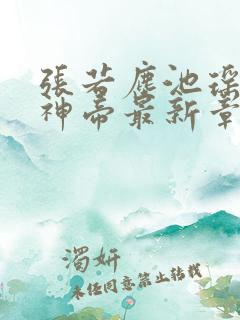 張若塵池瑤
神帝最新章
濁妍
未经同意禁止转载